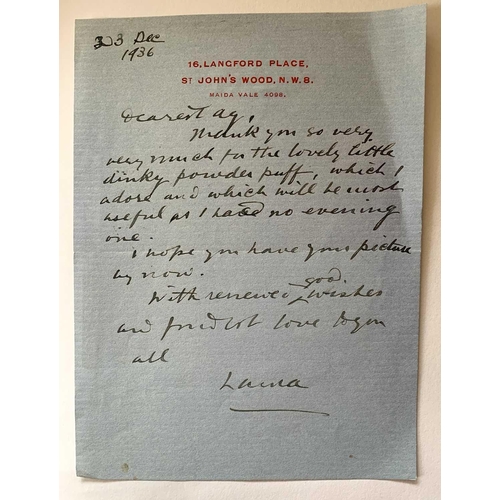 23 Dec
1936
16, LANGFORD PLACE,
ST JOHN'S WOOD, N.W.8.
MAIDA VALE 4098.
Dearest Ag,
Thank you so very
very much for the lovely little
dinky powder puff, which I
adore and which will be most
useful as I had no evening
one.
I hope you have your picture
by now.
With renewed good wishes
and fondest love to you
all
Laura